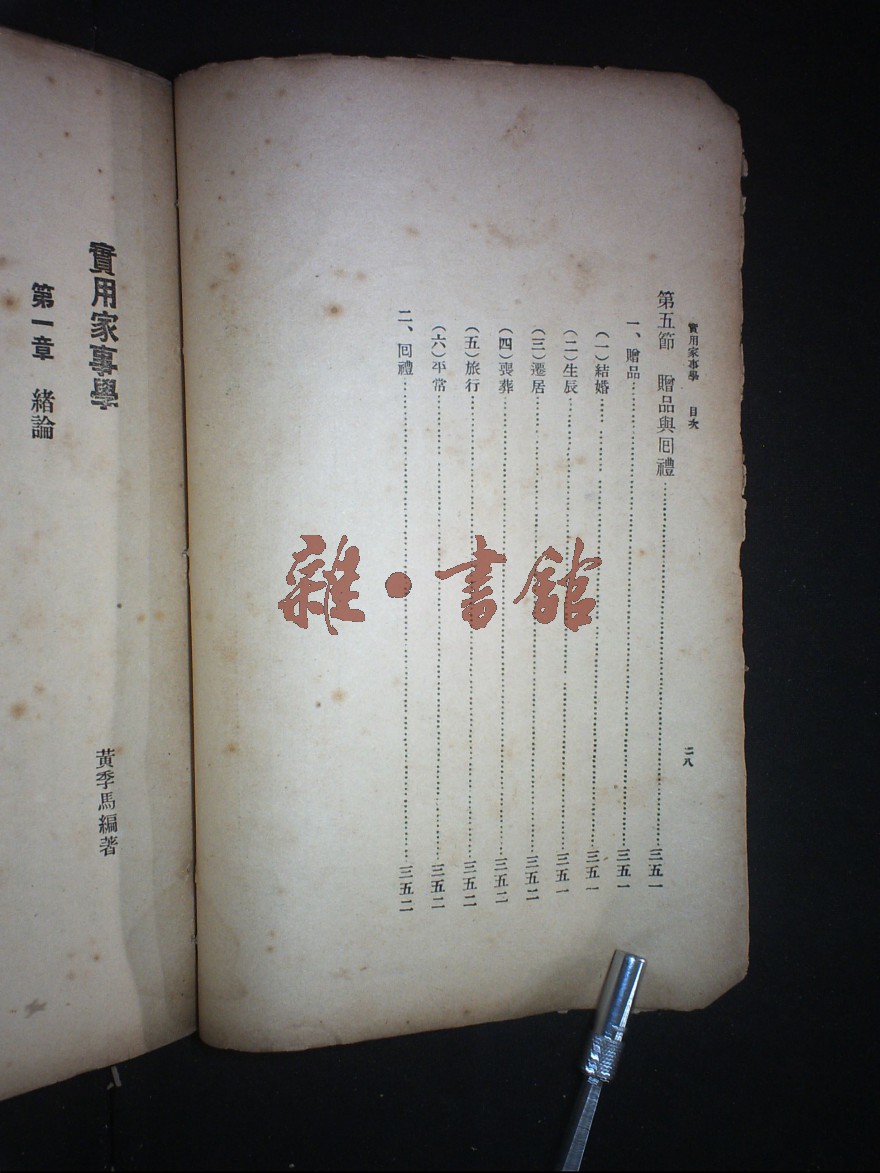 實用家事學 目次 二八
第五節 贈品與囘禮……三五一
一、贈品……三五一
(一)結婚……三五一
(二)生辰……三五一
(三)遷居……三五二
(四)喪葬……三五二
(五)旅行……三五二
(六)平常……三五二
二、囘禮……三五二
實用家事學
黃季馬編著
第一章 緒論
雜·書館